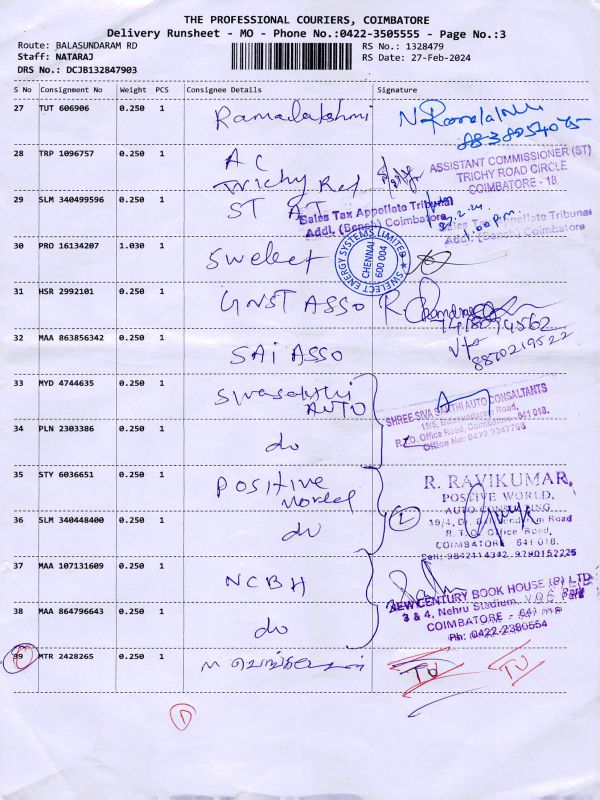 THE PROFESSIONAL COURIERS, COIMBATORE
Delivery Runsheet - MO - Phone No.:0422-3505555 - Page No.:3
Route: BALASUNDARAM RD RS No.: 1328479
Staff: NATARAJ RS Date: 27-Feb-2024
DRS No.: DCJB132847903
S No Consignment No Weight PCS Consignee Details Signature
27 TUT 606906 0.250 1 Ramalakshmi
28 TRP 1096757 0.250 1 A C
Trichy Rd
ASSISTANT COMMISSIONER (ST)
TRICHY ROAD CIRCLE
COIMBATORE - 18.
29 SLM 340499596 0.250 1 ST AT
Sales Tax Appellate Tribunal
Addl. (Bench) Coimbatore
Sales Tax Appellate Tribunal
Addl. (Bench) Coimbatore
30 PRO 16134207 1.030 1 Swelect
SWELECT ENERGY SYSTEMS LIMITED
CHENNAI
600 004
31 HSR 2992101 0.250 1 GNST ASSO
8870219522
32 MAA 863856342 0.250 1 SAI ASSO
33 MYD 4744635 0.250 1 Swasakthi
AUTO
SHREE SIVA SAKTHI AUTO CONSULTANTS
19/5, Balasundaram Road,
R.T.O. Office Road, Coimbatore - 641 018.
Office No: 0422 2247768
34 PLN 2303386 0.250 1 do
35 STY 6036651 0.250 1 Positive
World
R. RAVIKUMAR,
POSTIVE WORLD,
AUTO CONSULTING,
R. T. O. Office Road,
COIMBATORE 641 018.
Cell: 9842114342 9790152225
36 SLM 340448400 0.250 1 do
37 MAA 107131609 0.250 1 NCBH
NEW CENTURY BOOK HOUSE (P) LTD
3 & 4, Nehru Stadium, V.O.C. Park
COIMBATORE - 641 018
Ph: 0422-2380554
38 MAA 864796643 0.250 1 do
39 MTR 2428265 0.250 1